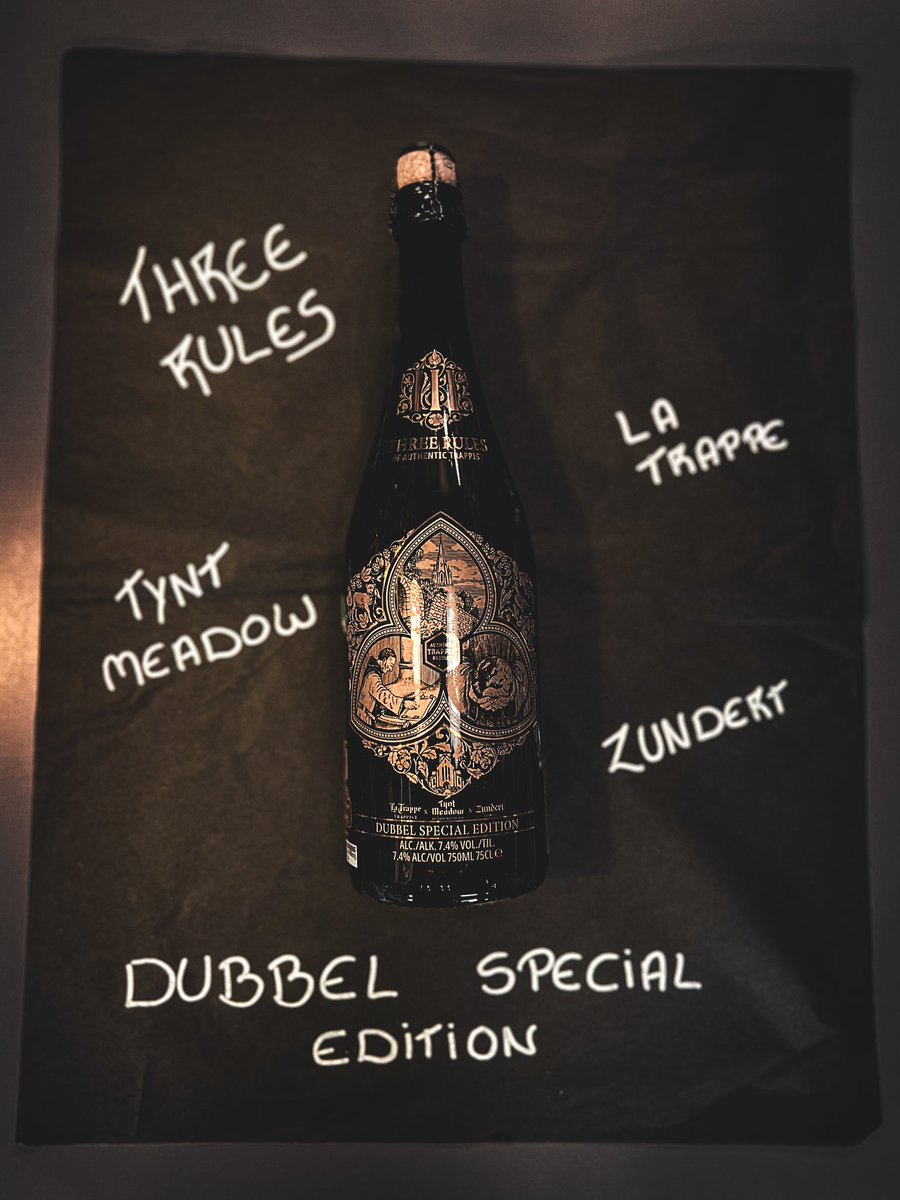 THREE
RULES
LA
TRAPPE
TYNT
MEADOW
ZUNDERT
III
THREE RULES
OF AUTHENTIC TRAPPIST
AUTHENTIC
TRAPPIST
PRODUCT
La Trappe x Tynt Meadow x Zundert
TRAPPIST
DUBBEL SPECIAL EDITION
ALC./ALK. 7.4% VOL./TIL.
7.4% ALC/VOL 750ML 75CL e
DUBBEL SPECIAL
EDITION